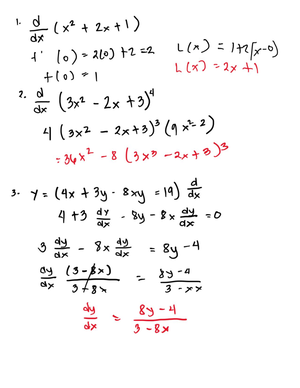 1. d/dx (x² + 2x + 1)
f' (0) = 2(0) + 2 = 2
f(0) = 1
L(x) = 1+2(x-0)
L(x) = 2x + 1
2. d/dx (3x² - 2x + 3)⁴
4 (3x² - 2x + 3)³ (9x² - 2)
= 36x² - 8 (3x³ - 2x + 3)³
3. Y = (4x + 3y - 8xy = 19) d/dx
4 + 3 dy/dx - 8y - 8x dy/dx = 0
3 dy/dx - 8x dy/dx = 8y - 4
dy/dx (3 - 8x)/(3 - 8x) = (8y - 4)/(3 - xx)
dy/dx = (8y - 4)/(3 - 8x)